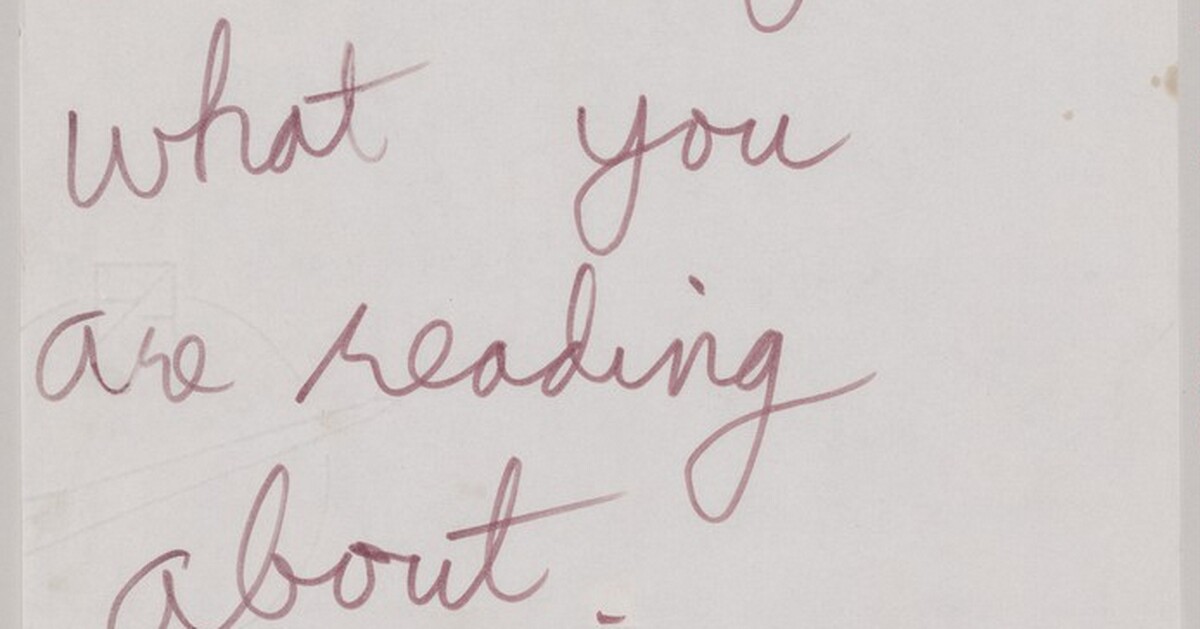 what you
are reading
about.